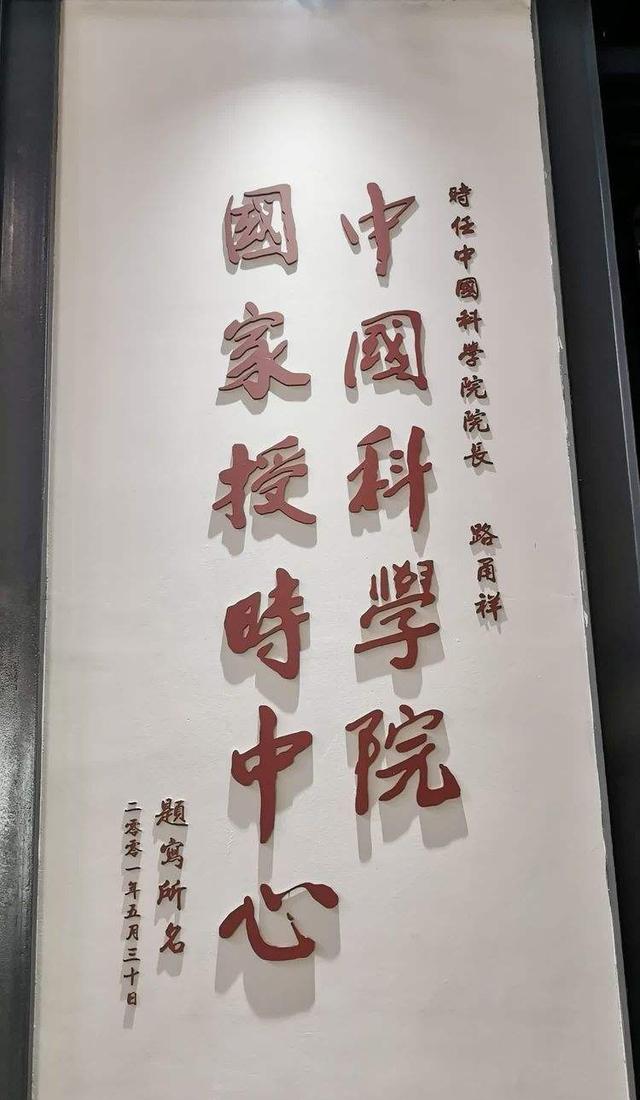 時任中國科學院院長 路甬祥
中國科學院
國家授時中心
題寫所名
二零零一年五月三十日